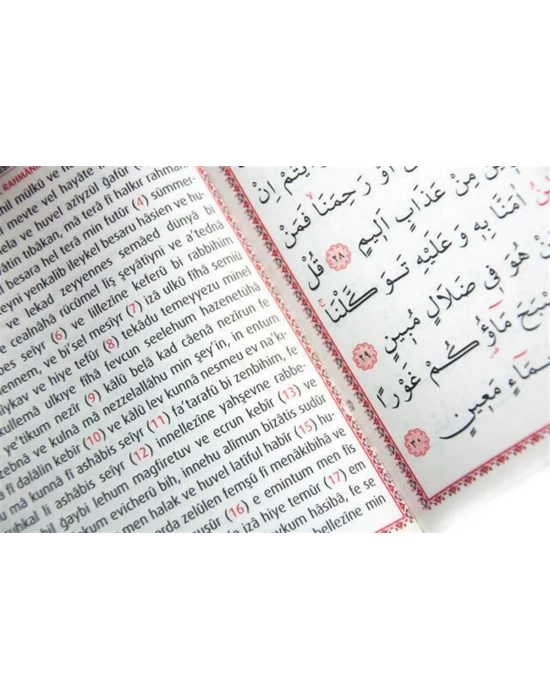 RAHMANİ
mil mülkü ve
meyte vel hayâte
ela ve huvel azîyzül ğafûr
tıbâkan, mâ terâ fî halkır rahmâ
besara hel terâ min futûr (4) sümmer-
eyni yenkalib ileykel besaru hâsien ve hu-
ve lekad zeyyennes semâed dünyâ bi
ve cealnâhâ rucûmel liş şeyâtîyni ve a'tednâ
bes seîyr (6) ve lillezîne keferû bi rabbihim
ennem, ve bi'sel mesîyr (7) izâ ülkû fîhâ semiû
îykav ve hiye tefûr (8) tekâdu temeyyezu minel
kullemâ ulkıye fîhâ fevcun seelehum hazenetühâ
e'tikum nezîr (9) kâlû belâ kad câenâ nezîrun fe
zebnâ ve kulnâ mâ nezzelallâhu min şey'in, in entum
â fî dalâlin kebîr (10) ve kâlû lev kunnâ nesmeu ev na'k-
mâ kunnâ fî ashâbis seîyr (11) fa'tarafû bi zenbihim, fe
uhkal fi ashâbis seîyr (12) innellezîne yahşevne rabbe-
bil ğaybi lehum mağfiretuv ve ecrun kebîr (13) ve
kum evicherû bih, innehu alîmun bizâtis sudûr
men halak ve huvel latîful habîr (15) hu-
arda zelûlen femşû fî menâkibihâ ve
nuşûr (16) e emintum men fis
izâ hiye temûr (17) em
aykum hâsibâ, fe se
bellezîne min
اِنْ
اَوْ رَحِمَنَا فَمَنْ
مِنْ عَذَابٍ اَلِيمٍ ﴿٢٨﴾ قُلْ
اٰمَنَّا بِهٖ وَعَلَيْهِ تَوَكَّلْنَا
هُوَ فِى ضَلَالٍ مُبِينٍ ﴿٢٩﴾
مَٓاؤُكُمْ غَوْرًا
مَعِينٍ ﴿٣٠﴾